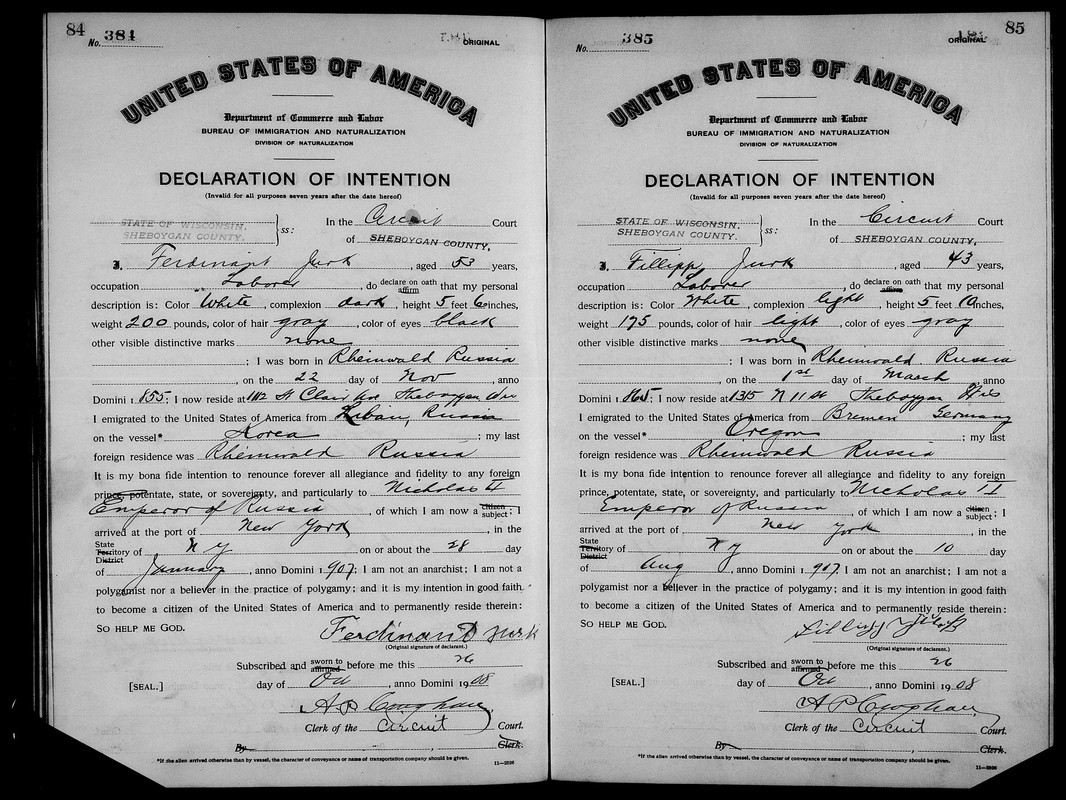 84
No. 384
ORIGINAL
UNITED STATES OF AMERICA
Department of Commerce and Labor
BUREAU OF IMMIGRATION AND NATURALIZATION
DIVISION OF NATURALIZATION
DECLARATION OF INTENTION
(Invalid for all purposes seven years after the date hereof)
STATE OF WISCONSIN.
SHEBOYGAN COUNTY.
ss:
In the Circuit Court
of SHEBOYGAN COUNTY,
I, Ferdinant Jurk, aged 53 years,
occupation Laborer, do declare on oath affirm that my personal
description is: Color White, complexion dark, height 5 feet 6 inches,
weight 200 pounds, color of hair gray, color of eyes black
other visible distinctive marks none
; I was born in Rheinwald Russia
, on the 22 day of Nov, anno
Domini 1 855; I now reside at 1112 St Clair Ave Sheboygan Wis
I emigrated to the United States of America from Libau, Russia
on the vessel* Korea; my last
foreign residence was Rheinwald Russia
It is my bona fide intention to renounce forever all allegiance and fidelity to any foreign
prince, potentate, state, or sovereignty, and particularly to Nicholas II
Emperor of Russia, of which I am now a citizen subject; I
arrived at the port of New York, in the
State Territory District of N Y on or about the 28 day
of January, anno Domini 1 907; I am not an anarchist; I am not a
polygamist nor a believer in the practice of polygamy; and it is my intention in good faith
to become a citizen of the United States of America and to permanently reside therein:
SO HELP ME GOD.
Ferdinand Jurk
(Original signature of declarant.)
Subscribed and sworn to affirmed before me this 26
[SEAL.] day of Oct, anno Domini 19 08
A P
Clerk of the Circuit Court.
By , Clerk.
*If the alien arrived otherwise than by vessel, the character of conveyance or name of transportation company should be given.
11—2826
85
No. 385
ORIGINAL
UNITED STATES OF AMERICA
Department of Commerce and Labor
BUREAU OF IMMIGRATION AND NATURALIZATION
DIVISION OF NATURALIZATION
DECLARATION OF INTENTION
(Invalid for all purposes seven years after the date hereof)
STATE OF WISCONSIN.
SHEBOYGAN COUNTY.
ss:
In the Circuit Court
of SHEBOYGAN COUNTY,
I, Fillipp Jurk, aged 43 years,
occupation Laborer, do declare on oath affirm that my personal
description is: Color White, complexion light, height 5 feet 10 inches,
weight 175 pounds, color of hair light, color of eyes gray
other visible distinctive marks none
; I was born in Rheinwald Russia
, on the 1st day of March, anno
Domini 1 865; I now reside at 1315 N 11 St Sheboygan Wis
I emigrated to the United States of America from Bremen Germany
on the vessel* Oregon; my last
foreign residence was Rheinwald Russia
It is my bona fide intention to renounce forever all allegiance and fidelity to any foreign
prince, potentate, state, or sovereignty, and particularly to Nicholas II
Emperor of Russia, of which I am now a citizen subject; I
arrived at the port of New York, in the
State Territory District of N Y on or about the 10 day
of Aug, anno Domini 1 907; I am not an anarchist; I am not a
polygamist nor a believer in the practice of polygamy; and it is my intention in good faith
to become a citizen of the United States of America and to permanently reside therein:
SO HELP ME GOD.
(Original signature of declarant.)
Subscribed and sworn to affirmed before me this 26
[SEAL.] day of Oct, anno Domini 19 08
A P
Clerk of the Circuit Court.
By , Clerk.
*If the alien arrived otherwise than by vessel, the character of conveyance or name of transportation company should be given.
11—2826